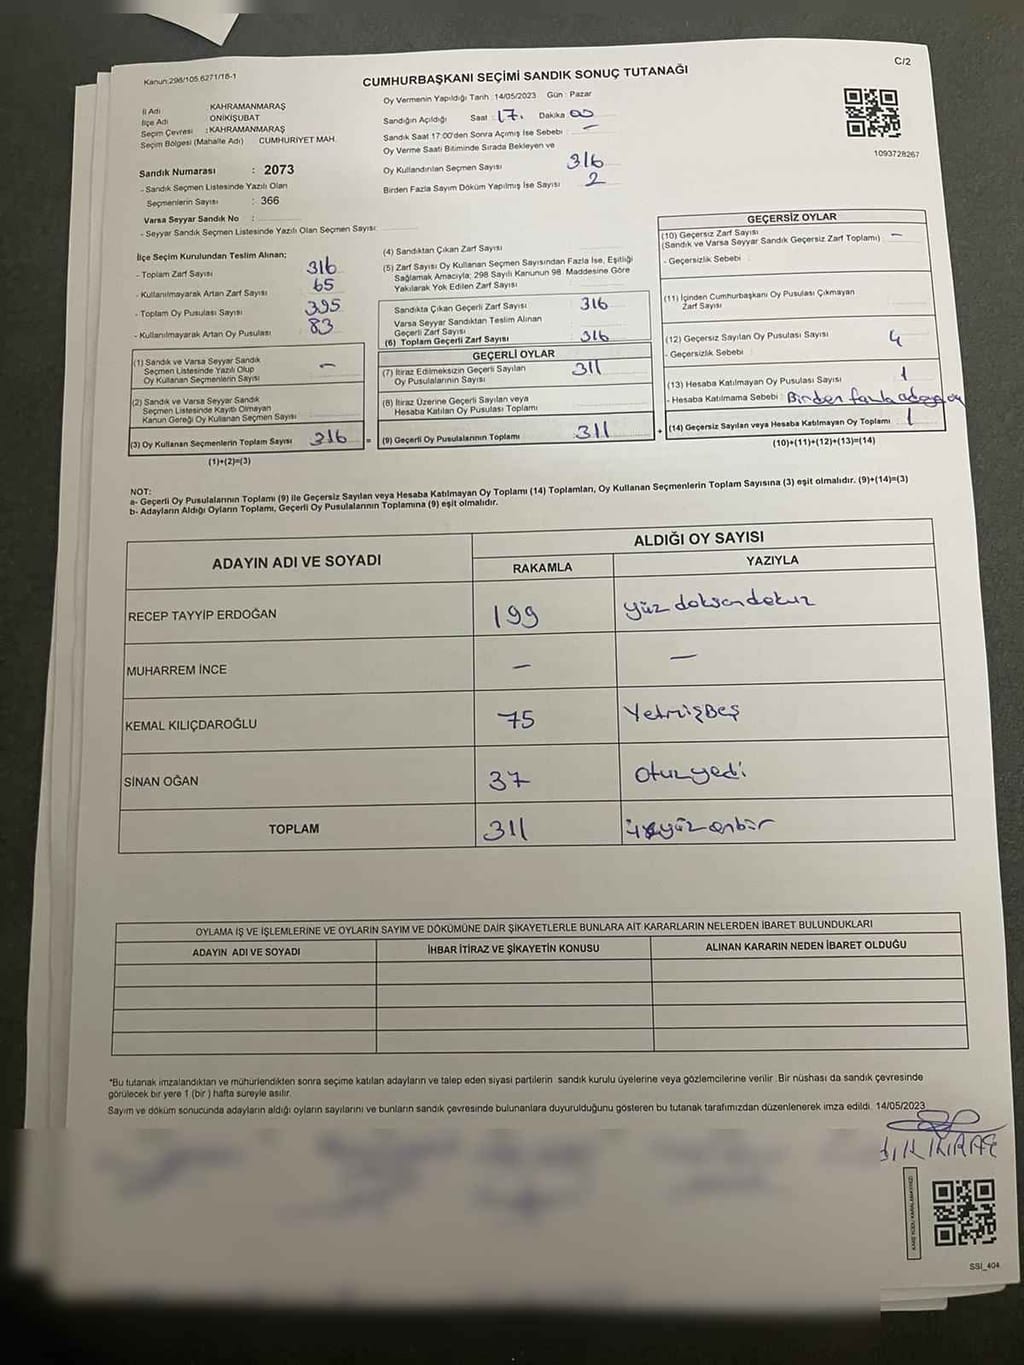 Kanun:298/105.6271/16-1
C/2
CUMHURBAŞKANI SEÇİMİ SANDIK SONUÇ TUTANAĞI
İl Adı : KAHRAMANMARAŞ
İlçe Adı : ONİKİŞUBAT
Seçim Çevresi : KAHRAMANMARAŞ
Seçim Bölgesi (Mahalle Adı) CUMHURİYET MAH.
Oy Vermenin Yapıldığı Tarih :14/05/2023 Gün : Pazar
Sandığın Açıldığı Saat : 17. Dakika 00
Sandık Saat 17:00'den Sonra Açmış İse Sebebi : –
Oy Verme Saati Bitiminde Sırada Bekleyen ve
Oy Kullandırılan Seçmen Sayısı 316
Birden Fazla Sayım Döküm Yapılmış İse Sayısı 2
1093728267
Sandık Numarası : 2073
- Sandık Seçmen Listesinde Yazılı Olan
Seçmenlerin Sayısı : 366
Varsa Seyyar Sandık No :
- Seyyar Sandık Seçmen Listesinde Yazılı Olan Seçmen Sayısı:
İlçe Seçim Kurulundan Teslim Alınan;
- Toplam Zarf Sayısı 316
- Kullanılmayarak Artan Zarf Sayısı 65
- Toplam Oy Pusulası Sayısı 395
- Kullanılmayarak Artan Oy Pusulası 83
(1) Sandık ve Varsa Seyyar Sandık
Seçmen Listesinde Yazılı Olup
Oy Kullanan Seçmenlerin Sayısı –
(2) Sandık ve Varsa Seyyar Sandık
Seçmen Listesinde Kayıtlı Olmayan
Kanun Gereği Oy Kullanan Seçmen Sayısı
(3) Oy Kullanan Seçmenlerin Toplam Sayısı 316 =
(1)+(2)=(3)
(4) Sandıktan Çıkan Zarf Sayısı
(5) Zarf Sayısı Oy Kullanan Seçmen Sayısından Fazla İse, Eşitliği
Sağlamak Amacıyla; 298 Sayılı Kanunun 98. Maddesine Göre
Yakılarak Yok Edilen Zarf Sayısı
Sandıkta Çıkan Geçerli Zarf Sayısı 316
Varsa Seyyar Sandıktan Teslim Alınan
Geçerli Zarf Sayısı
(6) Toplam Geçerli Zarf Sayısı 316
GEÇERLİ OYLAR
(7) İtiraz Edilmeksizin Geçerli Sayılan
Oy Pusulalarının Sayısı 311
(8) İtiraz Üzerine Geçerli Sayılan veya
Hesaba Katılan Oy Pusulası Toplamı
(9) Geçerli Oy Pusulalarının Toplamı 311 +
GEÇERSİZ OYLAR
(10) Geçersiz Zarf Sayısı –
(Sandık ve Varsa Seyyar Sandık Geçersiz Zarf Toplamı)
- Geçersizlik Sebebi
(11) İçinden Cumhurbaşkanı Oy Pusulası Çıkmayan
Zarf Sayısı
(12) Geçersiz Sayılan Oy Pusulası Sayısı 4
- Geçersizlik Sebebi
(13) Hesaba Katılmayan Oy Pusulası Sayısı 1
- Hesaba Katılmama Sebebi : Birden fazla adaya oy
(14) Geçersiz Sayılan veya Hesaba Katılmayan Oy Toplamı 1
(10)+(11)+(12)+(13)=(14)
NOT:
a- Geçerli Oy Pusulalarının Toplamı (9) ile Geçersiz Sayılan veya Hesaba Katılmayan Oy Toplamı (14) Toplamları, Oy Kullanan Seçmenlerin Toplam Sayısına (3) eşit olmalıdır. (9)+(14)=(3)
b- Adayların Aldığı Oyların Toplamı, Geçerli Oy Pusulalarının Toplamına (9) eşit olmalıdır.
ADAYIN ADI VE SOYADI
ALDIĞI OY SAYISI
RAKAMLA YAZIYLA
RECEP TAYYİP ERDOĞAN 199 yüz doksandokuz
MUHARREM İNCE – –
KEMAL KILIÇDAROĞLU 75 YetmişBeş
SİNAN OĞAN 37 Otuzyedi
TOPLAM 311 üçyüzonbir
OYLAMA İŞ VE İŞLEMLERİNE VE OYLARIN SAYIM VE DÖKÜMÜNE DAİR ŞİKAYETLERLE BUNLARA AİT KARARLARIN NELERDEN İBARET BULUNDUKLARI
ADAYIN ADI VE SOYADI İHBAR İTİRAZ VE ŞİKAYETİN KONUSU ALINAN KARARIN NEDEN İBARET OLDUĞU
*Bu tutanak imzalandıktan ve mühürlendikten sonra seçime katılan adayların ve talep eden siyasi partilerin sandık kurulu üyelerine veya gözlemcilerine verilir. Bir nüshası da sandık çevresinde
görülecek bir yere 1 (bir ) hafta süreyle asılır.
Sayım ve döküm sonucunda adayların aldığı oyların sayılarını ve bunların sandık çevresinde bulunanlara duyurulduğunu gösteren bu tutanak tarafımızdan düzenlenerek imza edildi. 14/05/2023
KARE KODU KARALAMAYINIZ!
SSİ_404